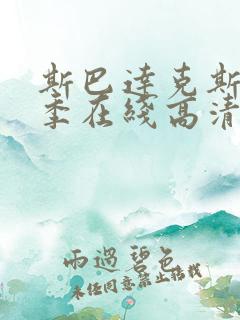 斯巴达克斯
季在线高清
雨过碧色
未经同意禁止搭找